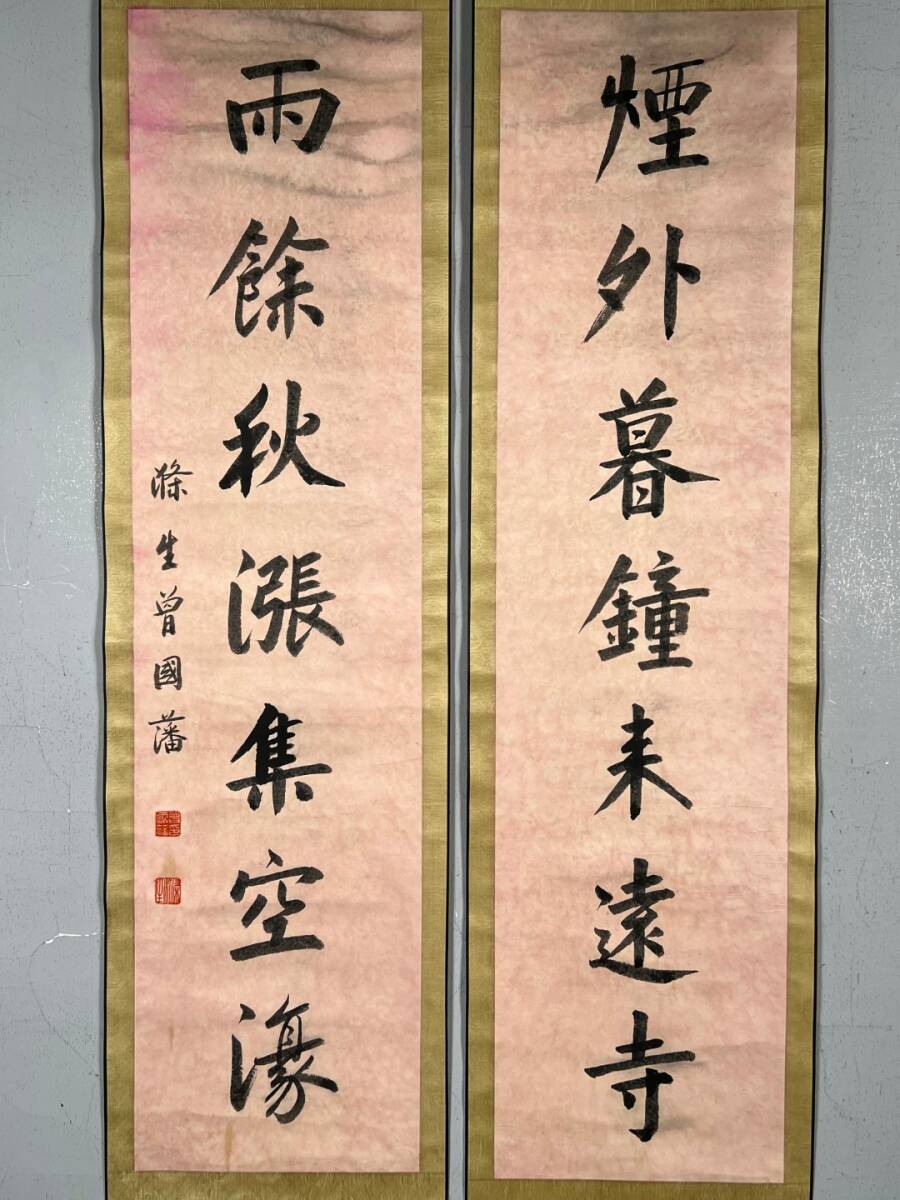 煙外暮鐘来遠寺
雨餘秋漲集空濠
滌生曾國藩